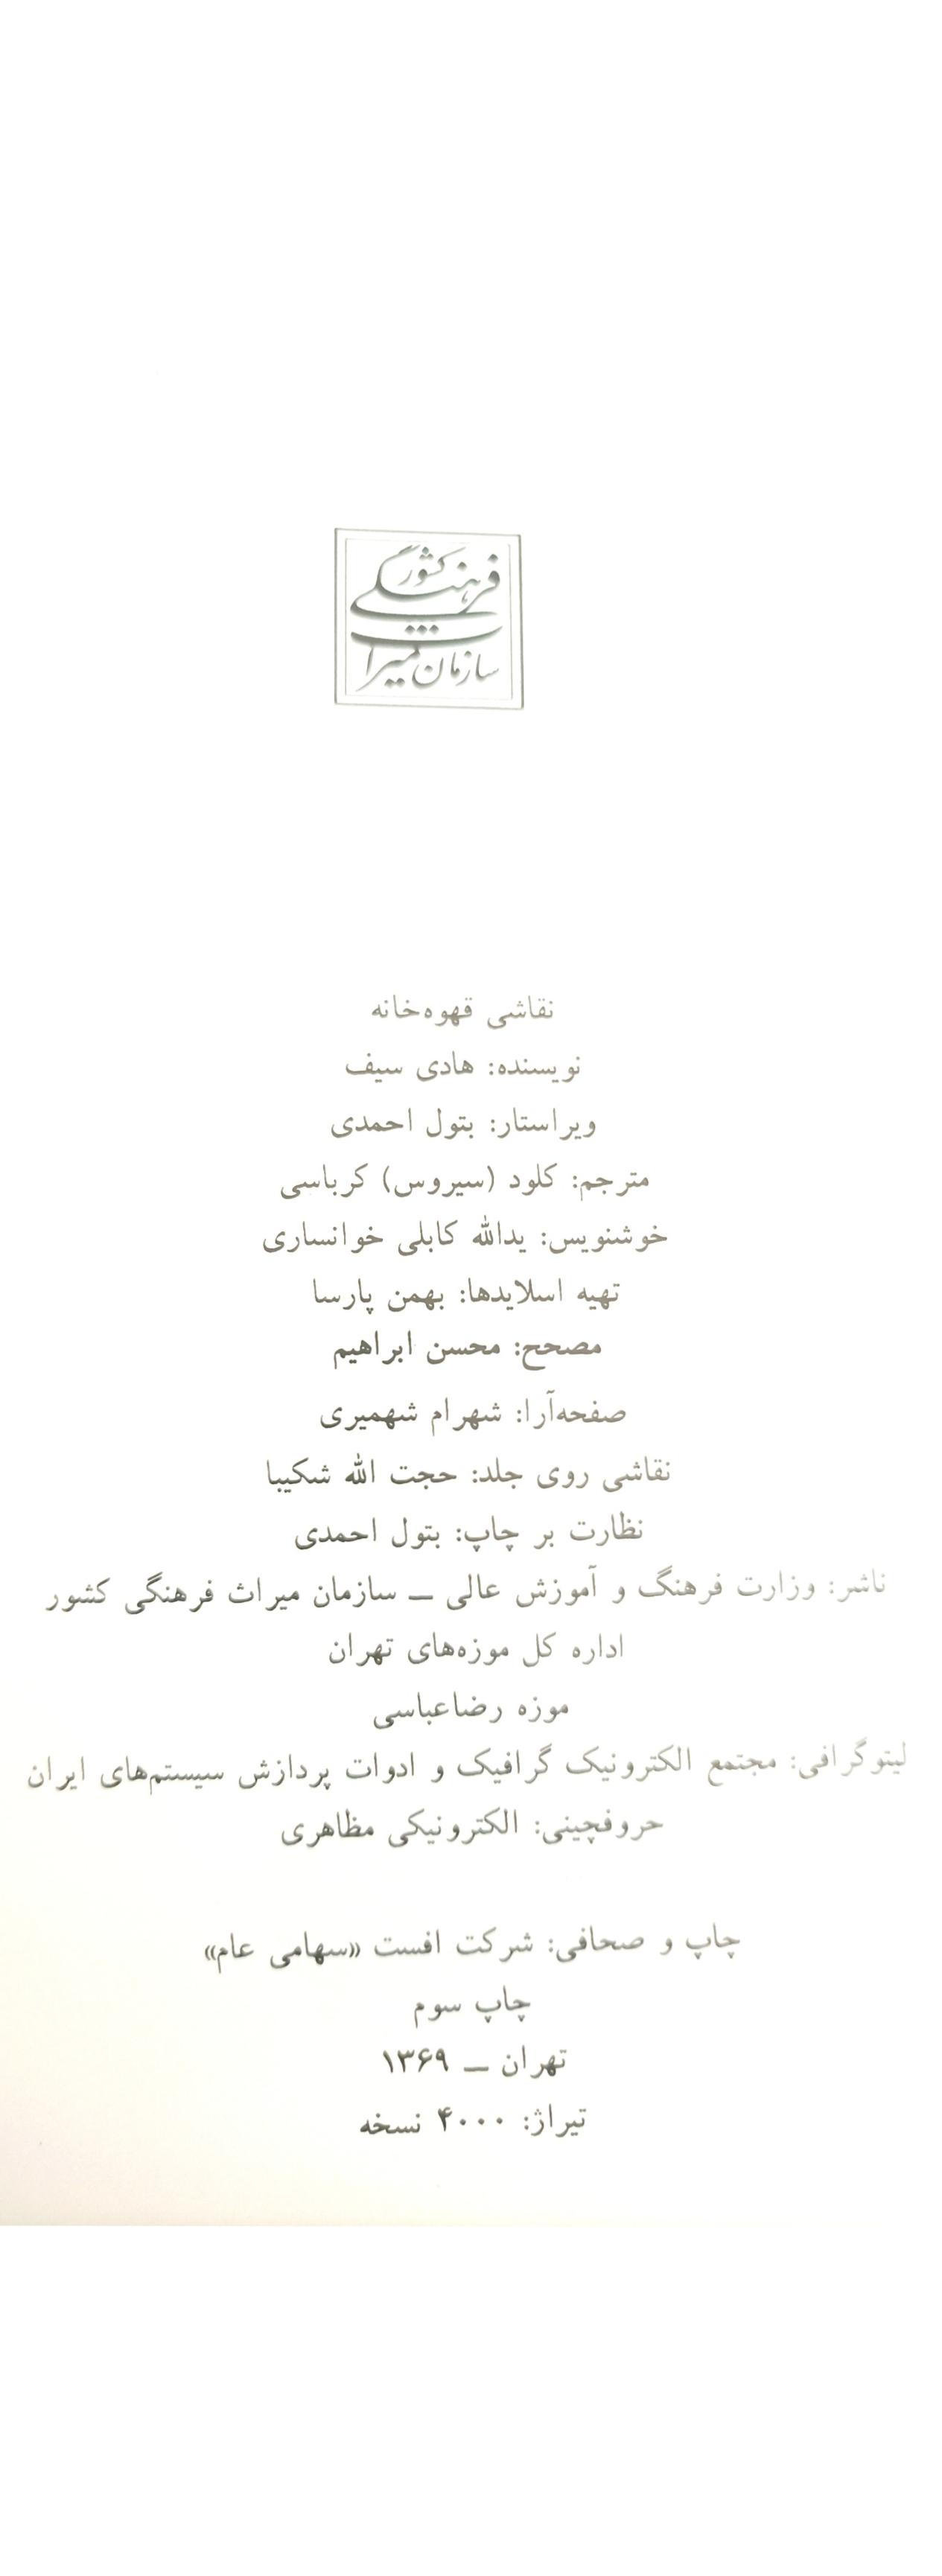 سازمان میراث
فرهنگی کشور
نقاشی قهوه‌خانه
نویسنده: هادی سیف
ویراستار: بتول احمدی
مترجم: کلود (سیروس) کرباسی
خوشنویس: یدالله کابلی خوانساری
تهیه اسلایدها: بهمن پارسا
مصحح: محسن ابراهیم
صفحه‌آرا: شهرام شهمیری
نقاشی روی جلد: حجت الله شکیبا
نظارت بر چاپ: بتول احمدی
ناشر: وزارت فرهنگ و آموزش عالی ــ سازمان میراث فرهنگی کشور
اداره کل موزه‌های تهران
موزه رضاعباسی
لیتوگرافی: مجتمع الکترونیک گرافیک و ادوات پردازش سیستم‌های ایران
حروفچینی: الکترونیکی مظاهری
چاپ و صحافی: شرکت افست «سهامی عام»
چاپ سوم
تهران ــ ۱۳۶۹
تیراژ: ۴۰۰۰ نسخه